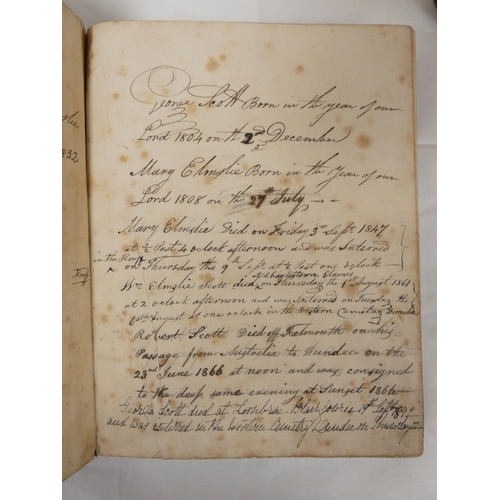 George Scott Born in the year of our
Lord 1804 on the 2nd December
Mary Elmslie Born in the Year of our
Lord 1808 on the 27th July
Mary Elmslie Died on Friday 3rd Sept 1847
at ½ Past 4 oclock afternoon and was Interred
in the Howff
on Thursday the 9th Sept at ½ Past one oclock
at Charlestown
Wm Elmslie died on Thursday the 1st August 1861
at 2 oclock afternoon and was Interred on Tuesday the
August at one oclock in the Western Cemetery Dundee
Robert Scott Died off Falmouth on his
Passage from Australia to Dundee on the
23rd June 1866 at noon and was consigned
to the deep same evening at Sunset 1866
George Scott died at Blairgowrie 14th Sept
and was interred in the western Cemetry Dundee on Thursday
1832